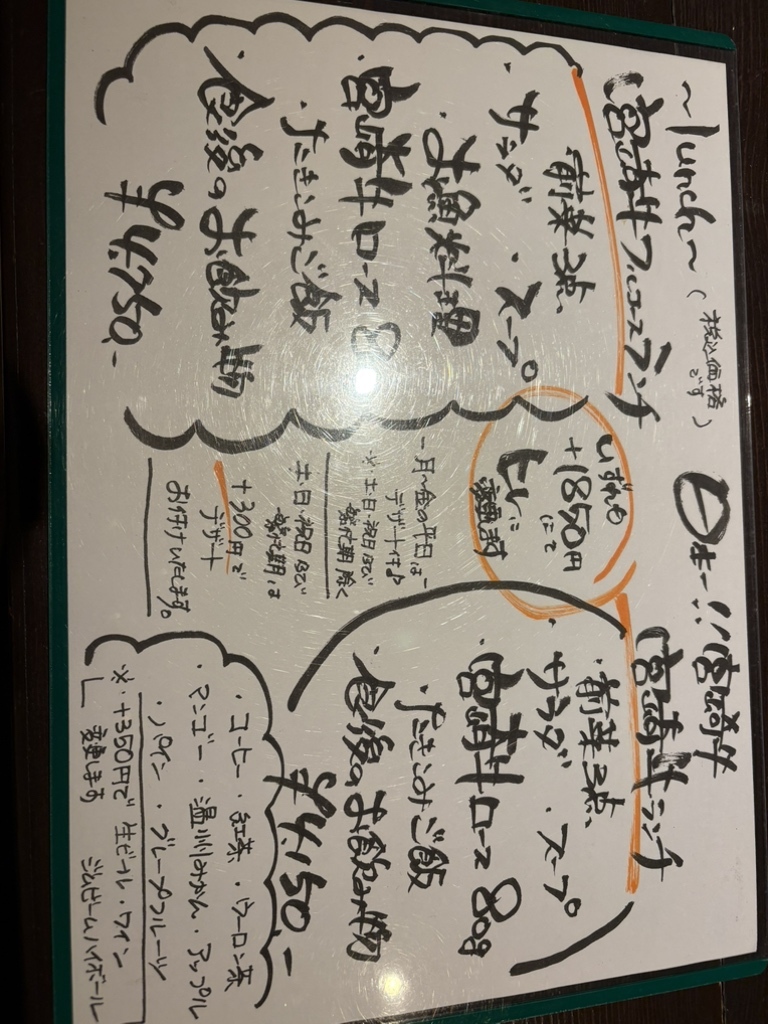 ~lunch~ (税込価格です)
宮崎牛フルコースランチ
前菜3点
・サラダ ・スープ
・お魚料理
・宮崎牛ロース 8
・たきこみご飯
・食後のお飲み物
¥4,750.-
いずれも
+1850円にて
ヒレに
変更可
-月~金の平日は-
デザート付♪
※土・日・祝日など
繁忙期除く
土・日・祝日など
繁忙期は
+300円で
デザート
お付けいたします。
!!宮崎牛
宮崎牛ランチ
・前菜3点
・サラダ ・スープ
・宮崎牛ロース 80g
・たきこみご飯
・食後のお飲み物
¥4,150.-
・コーヒー・紅茶・ウーロン茶
・マンゴー・温州みかん・アップル
・パイン・グレープフルーツ
※+350円で 生ビール・ワイン
ジムビームハイボール
変更します